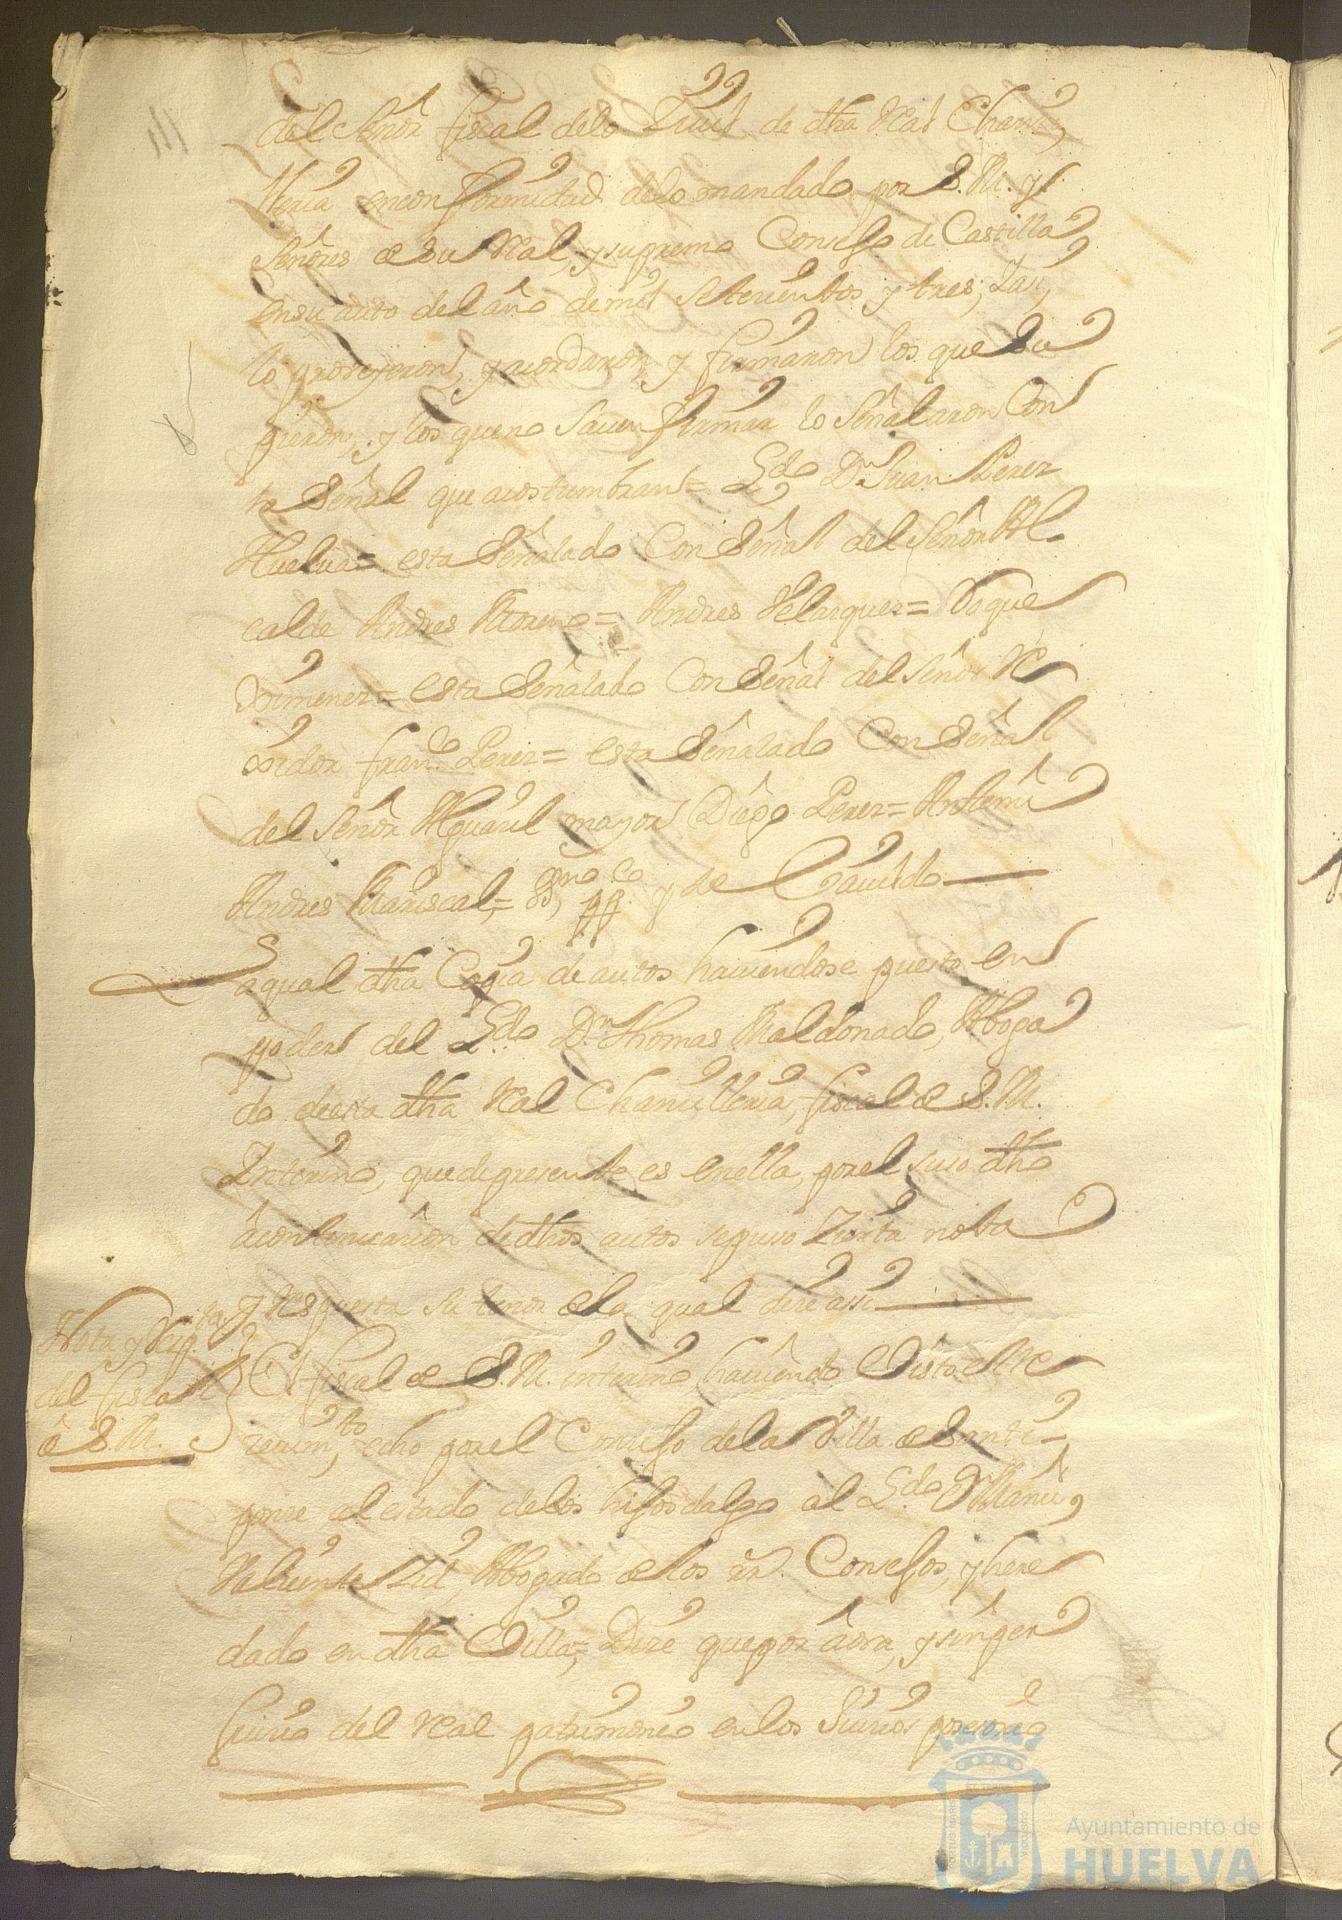 del Señor fiscal delo Zivil de dha Real Chanzi
lleria enconformidad delo mandado por S.M. y
Señores de su Real, y supremo Consejo de Castilla
ensu auto del año demil setezientos y tres; Iasi,
lo proveyeron, y acordaron y firmaron los que su
pieron, y los queno saven firmar lo señalaron Con
la Señal que acostumbran = Lzdo Dn Juan Perez
Huelva = esta señalado Con Señal del Señor Al
calde Andres Moreno = Andres Velazquez = Roque
Ximenez = esta señalado Con Señal del Señor Re
xidor franco Perez = esta Señalado Con Señal
del Señor Alguazil mayor Diego Perez = Antemi
Andres Mariscal, = ssno pp co y de Cavildo
Laqual dha Copia de autos haviendose puesto en
poder del Lzdo Dn Thomas Maldonado, Aboga
do de esta dha Real Chanzilleria, fiscal de S.M.
Interino, quedepresente es enella, porel suso dho
àcontinuazion de dhos autos sepuso Zierta nota
y respuesta su tenor dela qual dize assi
Nota y Resp.ta
del fiscal
de S.M.
El fiscal de S.M. interino haviendo Visto el Re
zevim.to echo porel Consejo dela Villa de Santi
ponze al estado delos hijosdalgo al Lzdo Dn Manu
Valiente Zid Abogado de los Rs. Consejos, y here
dado en dha Villa = Dize quepor àora, y sin per
juizio del real patrimonio en los Juizios posesorio
Ayuntamiento de
HUELVA